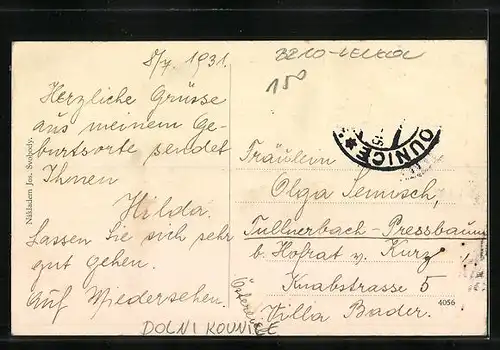 8/7. 1931.
150
Herzliche Grüsse
aus meinem Ge-
burtsorte sendet
Ihnen
Hilda.
Lassen Sie sich sehr
gut gehen.
Auf Wiedersehen.
Nákladem Jos. Svobody.
OUNICE
Fräulein
Olga Semisch,
Tullnerbach-Pressbaum
b. Hofrat v. Kurz
Knabstrasse 5
Villa Bader.
4056
DOLNI KOUNICE